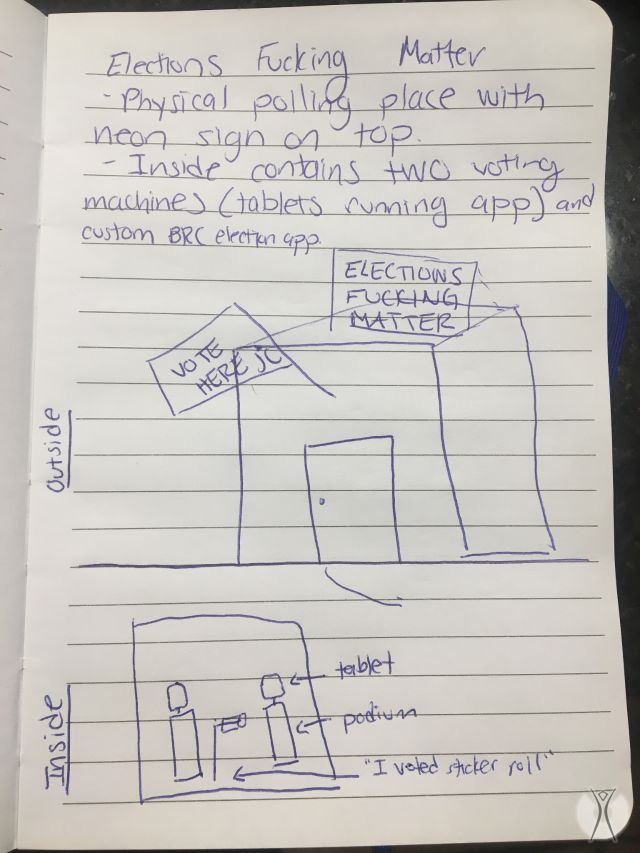 Elections Fucking Matter
- Physical polling place with
neon sign on top.
- Inside contains two voting
machines (tablets running app) and
custom BRC election app.
ELECTIONS
FUCKING
MATTER
VOTE
HERE
Outside
Inside
tablet
podium
"I voted sticker roll"